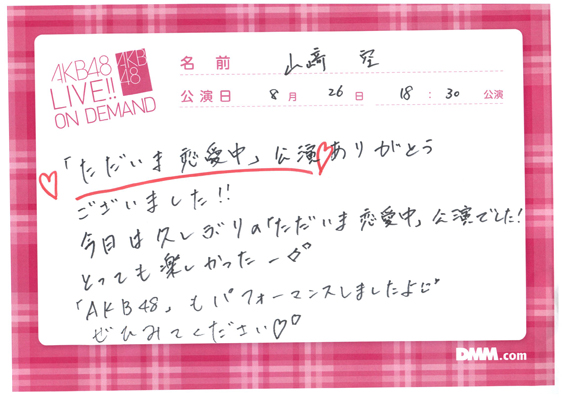 AKB48
LIVE!!
ON DEMAND
AKB
48
名前 山﨑 空
公演日 8月 26日 18:30 公演
「ただいま恋愛中」公演♡ありがとう
ございました!!
今日は久しぶりの「ただいま恋愛中」公演でした!
とっても楽しかったー
「AKB48」もパフォーマンスしましたよ
ぜひみてください♡
DMM.com